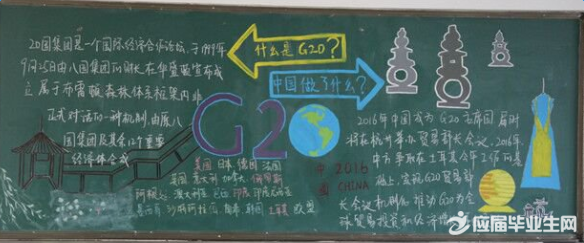 20国集团是一个国际经济合作论坛,于1999年
9月25日由八国集团的财长在华盛顿宣布成
立属于布雷顿森林体系框架内非
正式对话的一种机制,由原八
国集团及其余12个重要
经济体组成
什么是G20?
中国做了什么?
G20
美国 日本 德国 法国
英国 意大利 加拿大 俄罗斯
阿根廷 澳大利亚 巴西 印度 印度尼西亚
墨西哥 沙特阿拉伯 南非 韩国 土耳其 欧盟
中国
2016
CHINA
2016年中国成为G20主席国 届时
将在杭州举办贸易部长会议。2016年
中方争取在土耳其今年工作的基
础上,实现G20贸易部
长会议机制化 推动G20为全
球贸易投资和经济增
应届毕业生网